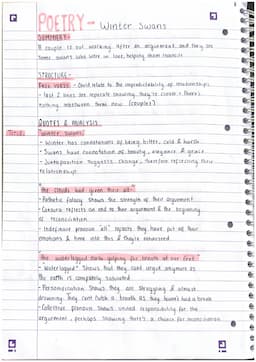 POETRY - Winter Swans
SUMMARY:
A couple is out walking after an argument and they see
some swans who were in love, helping them
STRUCTURE:
Free verse - Could relate to the unpredictability of relationships
- last 2 lines are separate showing they're closer + there's
nothing inbetween them now (couplet)
QUOTES & ANALYSIS
TITLE: "Winter Swans"
- Winter has connotations of being bitter, cold & harsh
- Swans have connotations of beauty, elegance & grace
- Juxtaposition suggests change, therefore reflecting their
relationship
"the clouds had given their all-"
- Pathetic fallacy shows the strength of their argument
- Caesura reflects an end to their argument & the beginning
of reconciliation
- Indefinite pronoun "all" reflects they have put all their
emotions & time into this & they're exhausted
"the waterlogged earth gulping for breath at our feet"
- "Waterlogged" shows that they need urgent
the earth is completely saturated
- Personification shows they are struggling & almost
drowning, they can't catch a breath as they haven't had a break
- Collective pronoun shows united responsibility for the
argument, perhaps showing there's a chance for reconciliation